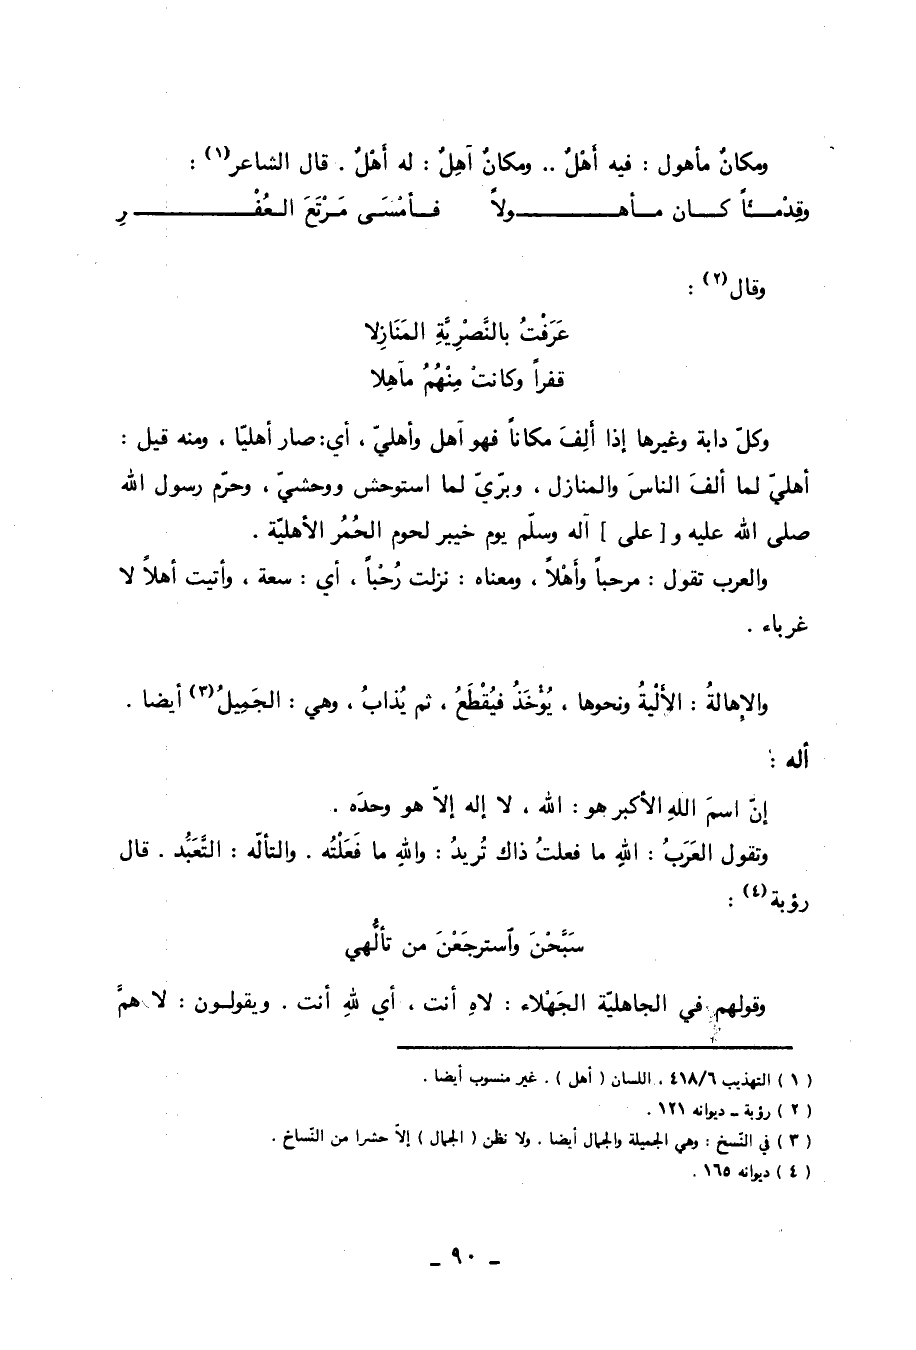 ومكانٌ مأهول : فيه أَهْلٌ .. ومكانٌ آهِلٌ : له أَهْلٌ . قال الشاعر(١) :
وقِدْمــئاً كــان مــأهــــــولاً فــأمْسَــى مَــرْتَعَ الـعُفْــــــــرِ
وقال(٢) :
عَرَفْتُ بالنَّصْرِيَّةِ المَنَازِلا
قفراً وكانتْ مِنْهُمُ مآهِلا
وكلّ دابة وغيرها إذا أَلِفَ مكاناً فهو آهل وأهليّ ، أي: صار أهليّا ، ومنه قيل :
أهليّ لما ألفَ الناسَ والمنازل ، وبرّيّ لما استوحش ووحشيّ ، وحرّم رسول الله
صلى الله عليه و[ على ] آله وسلّم يوم خيبر لحوم الحُمُر الأهليّة .
والعرب تقول : مرحباً وأَهْلاً ، ومعناه : نزلت رُحْباً ، أي : سعة ، وأتيت أهلاً لا
غرباء .
والإهالةُ : الأَلْيةُ ونحوها ، يُؤْخَذُ فيُقْطَعُ ، ثم يُذابُ ، وهي : الجَمِيلُ(٣) أيضا .
أله :
إنّ اسمَ اللهِ الأكبر هو : الله ، لا إله إلاّ هو وحدَه .
وتقول العَرَبُ : اللهِ ما فعلتُ ذاك تُريدُ : واللهِ ما فَعَلْتُه . والتألّه : التَّعَبُّد . قال
رؤبة(٤) :
سَبَّحْنَ وآسترجَعْنَ من تألُّهي
وقولهم في الجاهليّة الجَهْلاء : لاهِ أنت ، أي للهِ أنت . ويقولـون : لا همَّ
( ١ ) التهذيب ٤١٨/٦ ، اللسان ( أهل ) . غير منسوب أيضا .
( ٢ ) رؤبة ــ ديوانه ١٢١ .
( ٣ ) في النّسخ : وهي الجميلة والجمال أيضا . ولا نظن ( الجمال ) إلاّ حشرا من النّساخ .
( ٤ ) ديوانه ١٦٥ .
ـ ٩٠ ـ